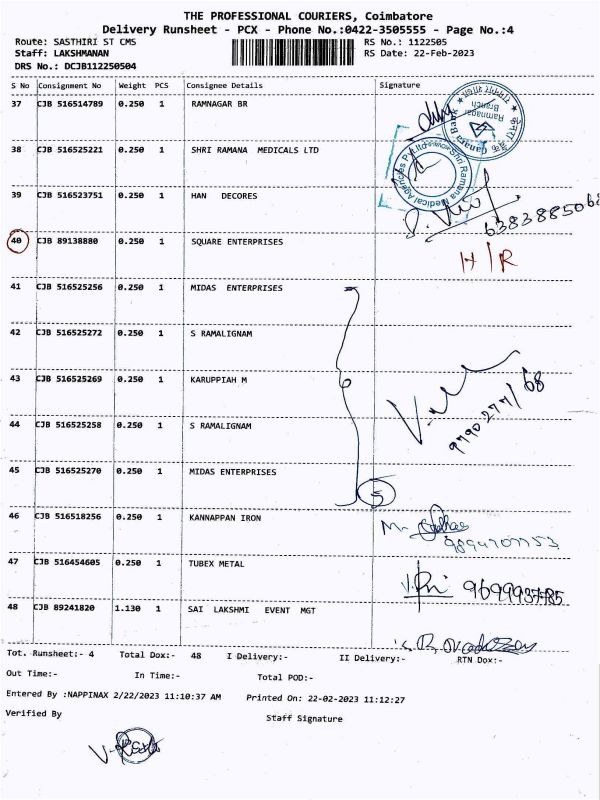 THE PROFESSIONAL COURIERS, Coimbatore
Delivery Runsheet - PCX - Phone No.:0422-3505555 - Page No.:4
Route: SASTHIRI ST CMS RS No.: 1122505
Staff: LAKSHMANAN RS Date: 22-Feb-2023
DRS No.: DCJB112250504
S No Consignment No Weight PCS Consignee Details Signature
37 CJB 516514789 0.250 1 RAMNAGAR BR
Canara Bank
Ramnagar Branch
38 CJB 516525221 0.250 1 SHRI RAMANA MEDICALS LTD
Shri Ramana Medical Agencies Pvt Ltd
39 CJB 516523751 0.250 1 HAN DECORES
6383885068
40 CJB 89138880 0.250 1 SQUARE ENTERPRISES H/R
41 CJB 516525256 0.250 1 MIDAS ENTERPRISES
42 CJB 516525272 0.250 1 S RAMALIGNAM
43 CJB 516525269 0.250 1 KARUPPIAH M
44 CJB 516525258 0.250 1 S RAMALIGNAM
45 CJB 516525270 0.250 1 MIDAS ENTERPRISES
5
46 CJB 516518256 0.250 1 KANNAPPAN IRON
47 CJB 516454605 0.250 1 TUBEX METAL
48 CJB 89241820 1.130 1 SAI LAKSHMI EVENT MGT
Tot. Runsheet:- 4 Total Dox:- 48 I Delivery:- II Delivery:- RTN Dox:-
Out Time:- In Time:- Total POD:-
Entered By :NAPPINAX 2/22/2023 11:10:37 AM Printed On: 22-02-2023 11:12:27
Verified By Staff Signature